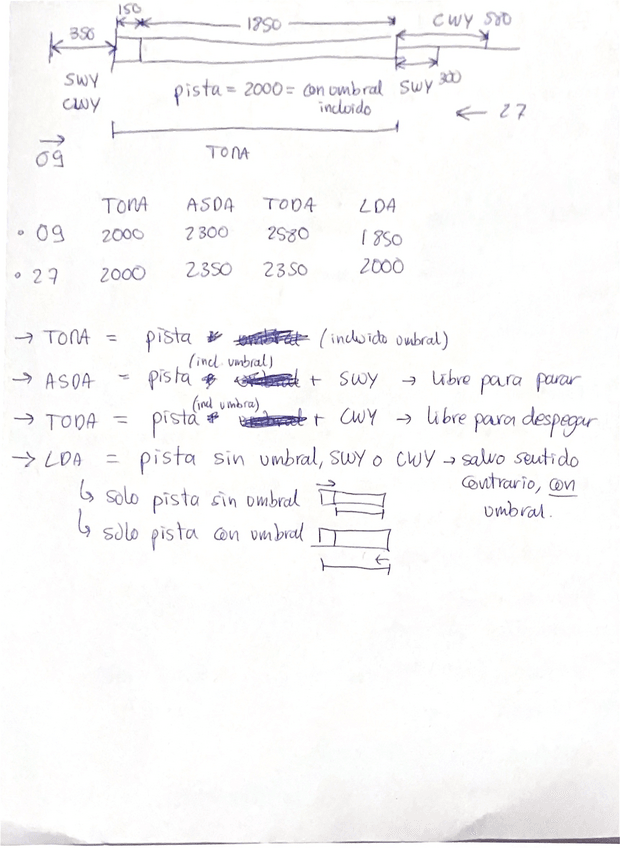 150
350 1850 CWY 580
SWY
CWY
pista = 2000 = con umbral incluido
SWY 300
← 27
09
TORA
TORA ASDA TODA LDA
• 09 2000 2300 2580 1850
• 27 2000 2350 2350 2000
→ TORA = pista (incluido umbral)
→ ASDA = pista (incl. umbral) + SWY → libre para parar
→ TODA = pista (incl umbra) + CWY → libre para despegar
→ LDA = pista sin umbral, SWY o CWY → salvo sentido contrario, con umbral.
↳ solo pista sin umbral
↳ sólo pista con umbral